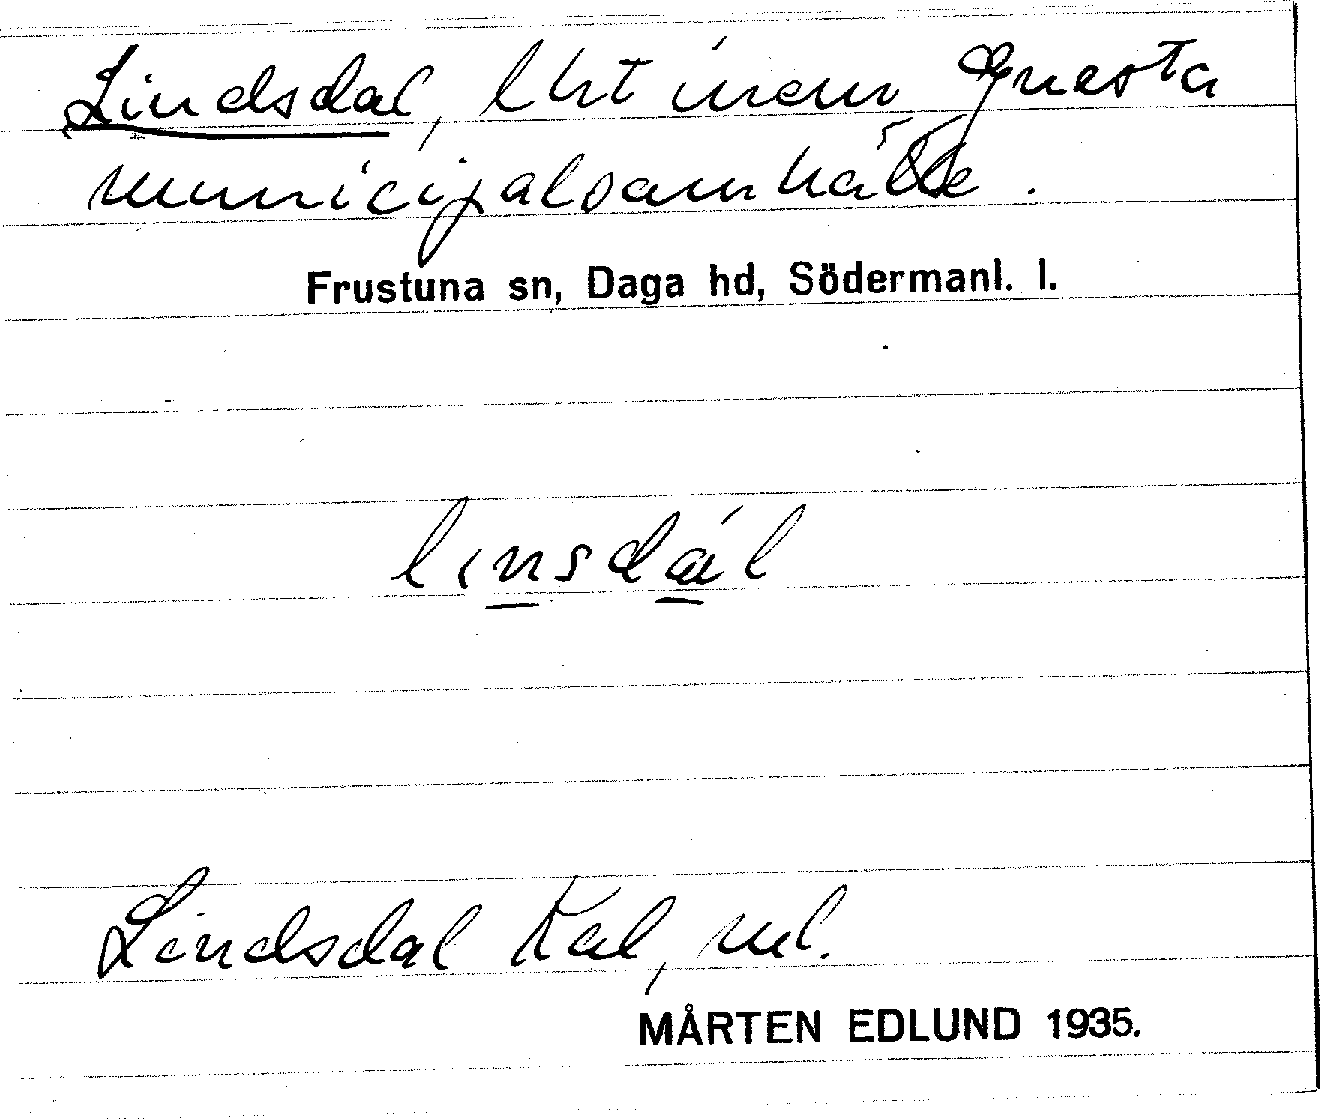 Lindsdal, lht inom Gnesta
municipalsamhälle.
Frustuna sn, Daga hd, Södermanl. l.
linsdál
Lindsdal
MÅRTEN EDLUND 1935.